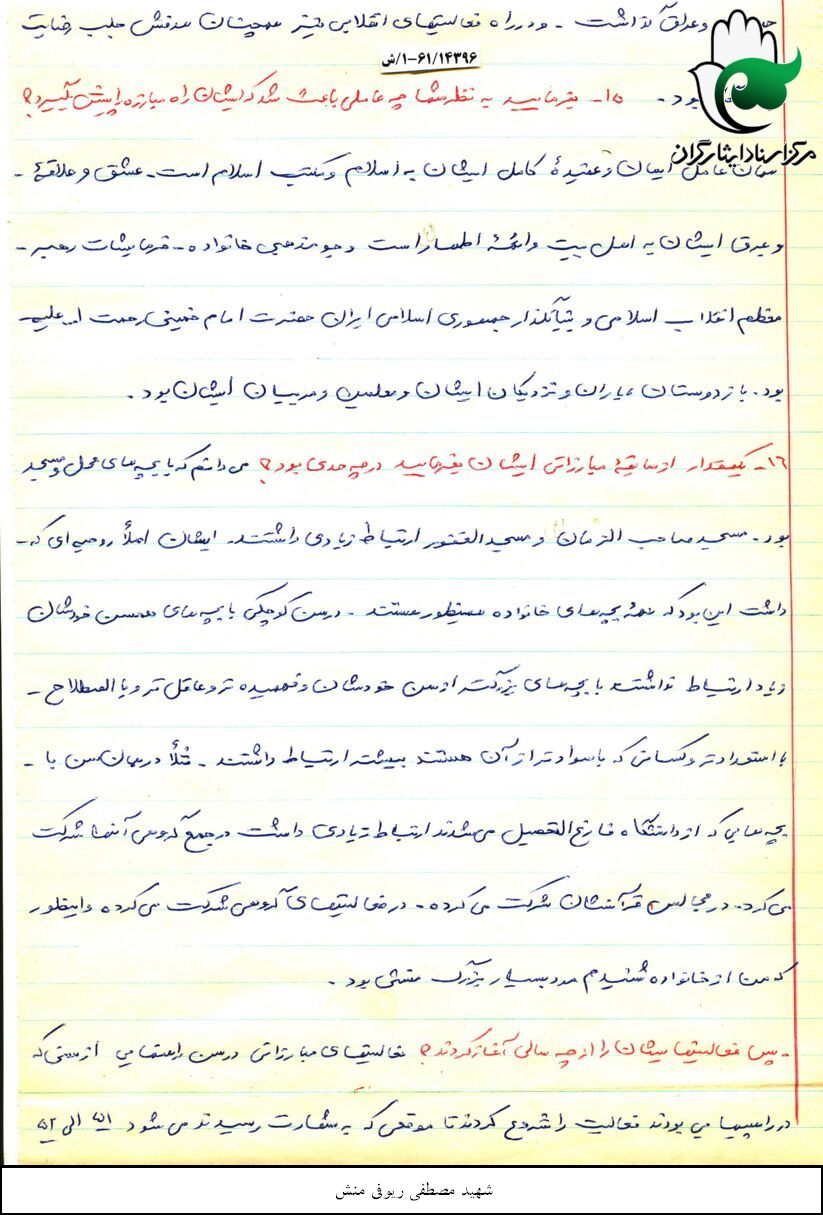 وعراق گذاشت - ودر راه فعالیتهای انقلابی نیز همچنان هدفش جلب رضایت
۱-۶۱/۱۴۳۹۶/ش
بود. ۱۵- بفرمایید به نظر شما چه عاملی باعث شد که ایشان راه مبارزه را پیش بگیرد؟
مرکز اسناد ایثارگران
همان عامل ایمان و عقیدهٔ کامل ایشان به اسلام و مکتب اسلام است - عشق و علاقهٔ -
و عرق ایشان به اهل بیت وائمهٔ اطهار است و جو مذهبی خانواده - فرمایشات رهبر -
معظم انقلاب اسلامی و بنیانگذار جمهوری اسلامی ایران حضرت امام خمینی رحمت ا... علیه
بود. باز دوستان، یاران و نزدیکان ایشان و معلمین و مربیان ایشان بود.
۱۶- یکمقدار از سابقهٔ مبارزاتی ایشان بفرمایید در چه حدی بود؟ می دانم که با بچه های محل و مسجد
بود. مسجد صاحب الزمان و مسجد الغفور ارتباط زیادی داشتند. ایشان اصلاً روحیه ای که -
داشت این بود که همهٔ بچه های خانواده همینطور هستند - در سن کوچکی با بچه های همسن خودشان
زیاد ارتباط نداشتند با بچه های بزرگتر از سن خودشان و فهمیده تر و عاقل تر و با اصطلاح -
با استعداد تر و کسانی که باسوادتر از آن هستند بیشتر ارتباط داشتند - مثلاً در همان سن با -
بچه هایی که از دانشگاه فارغ التحصیل می شدند ارتباط زیادی داشت در جمع گروهی آنها شرکت
می کرد. در مجالس قرآنشان شرکت می کرده - در فعالیتهای گروهی شرکت می کرده و اینطور
که من از خانواده شنیدم مرد بسیار بزرگ منشی بود.
- پس فعالیتهایشان را از چه سالی آغاز کردند؟ فعالیتهای مبارزاتی در سن راهنمایی از سنی که
در راهپیمایی بودند فعالیت را شروع کردند تا موقعی که به شهادت رسیدند می شود ۵۱ الی ۵۲
شهید مصطفی ریوفی منش